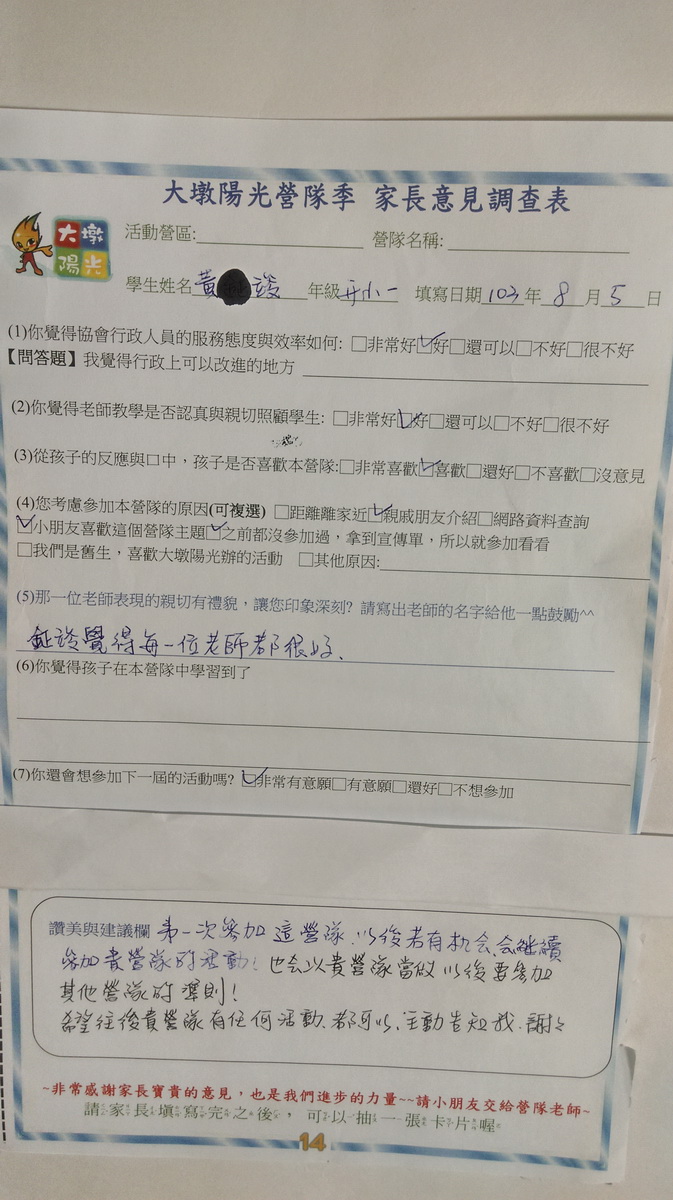 大墩陽光營隊季 家長意見調查表
大墩
陽光
活動營區:________ 營隊名稱:________
學生姓名 黃 錟 年級 升小一 填寫日期 103 年 8 月 5 日
(1)你覺得協會行政人員的服務態度與效率如何: □非常好☑好□還可以□不好□很不好
【問答題】我覺得行政上可以改進的地方________
(2)你覺得老師教學是否認真與親切照顧學生: □非常好☑好□還可以□不好□很不好
(3)從孩子的反應與口中，孩子是否喜歡本營隊:□非常喜歡☑喜歡□還好□不喜歡□沒意見
(4)您考慮參加本營隊的原因(可複選) □距離離家近☑親戚朋友介紹□網路資料查詢
☑小朋友喜歡這個營隊主題☑之前都沒參加過，拿到宣傳單，所以就參加看看
□我們是舊生，喜歡大墩陽光辦的活動 □其他原因:________
(5)那一位老師表現的親切有禮貌，讓您印象深刻? 請寫出老師的名字給他一點鼓勵^^
錟覺得每一位老師都很好、
(6)你覺得孩子在本營隊中學習到了
(7)你還會想參加下一屆的活動嗎? ☑非常有意願□有意願□還好□不想參加
讚美與建議欄 第一次參加這營隊、以後若有机会、会継續
參加貴營隊的活動! 也会以貴營隊當做以後要參加
其他營隊的準則!
希望往後貴營隊有任何活動、都可以、主動告知我、謝々
~非常感謝家長寶貴的意見，也是我們進步的力量~~請小朋友交給營隊老師~
請家長填寫完之後，可以抽一張卡片喔
14